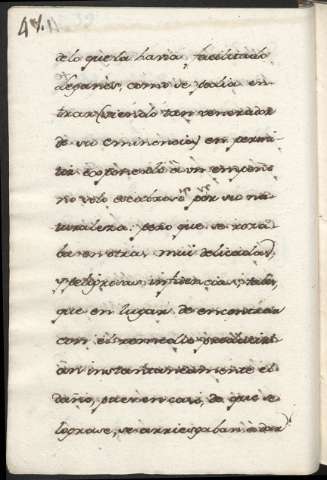 de lo que la havia facilitado
como se podia en-
trar (siendo tan venerador
de su eminencia) en permi-
tir exponerlo â un empeño
no solo escabroso por su na-
turaleza, pero que se roza-
ba en otras mui delicadas,
y peligrosas tales
que en lugar de encontrar
con el remedio producirî-
an instantaneamente el
daño, pues en caso, de que se
lograse, se arriesgaban â dar